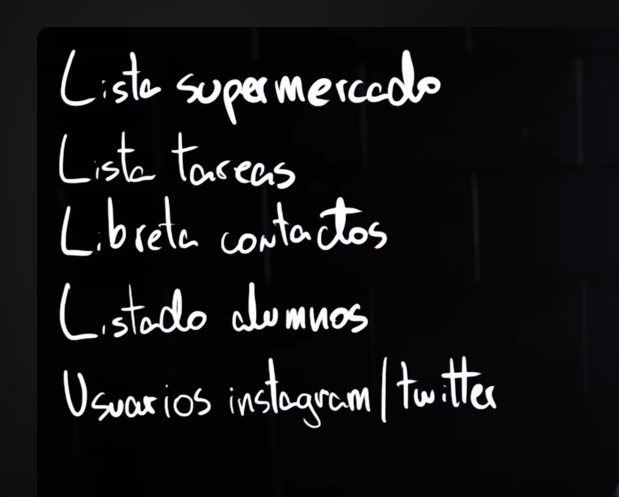 Lista supermercado
Lista tareas
Libreta contactos
Listado alumnos
Usuarios instagram/twitter